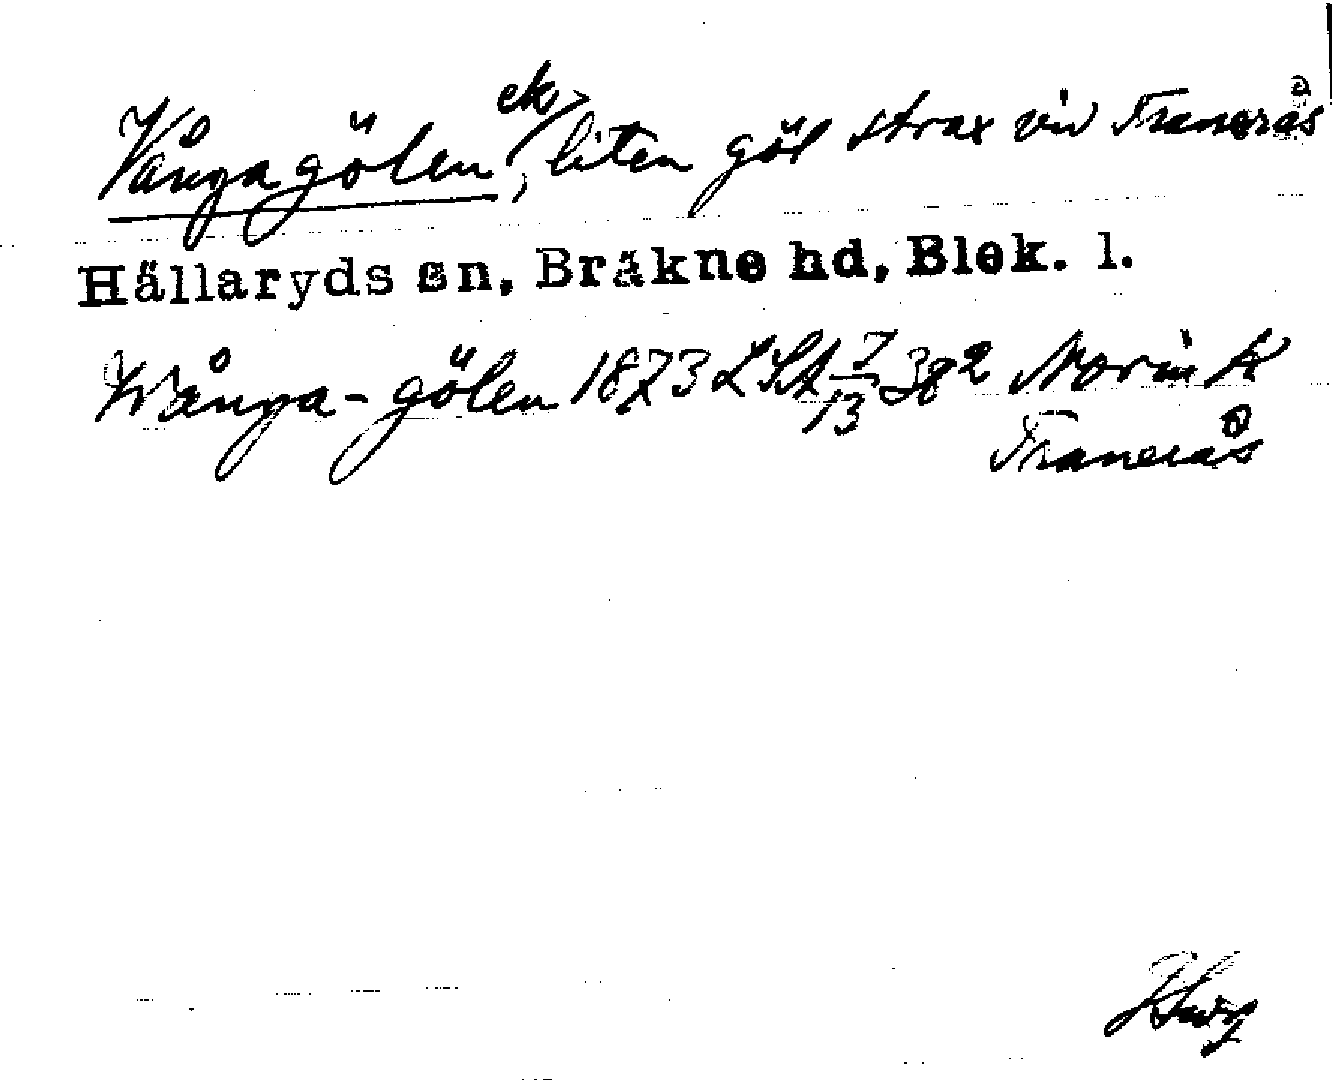 Vångagölen ek, liten göl strax vid Tranerås
Hällaryds sn, Bräkne hd, Blek. l.
Wånga-gölen 1873 LSA 7/13 382 Norin k
Tranerås